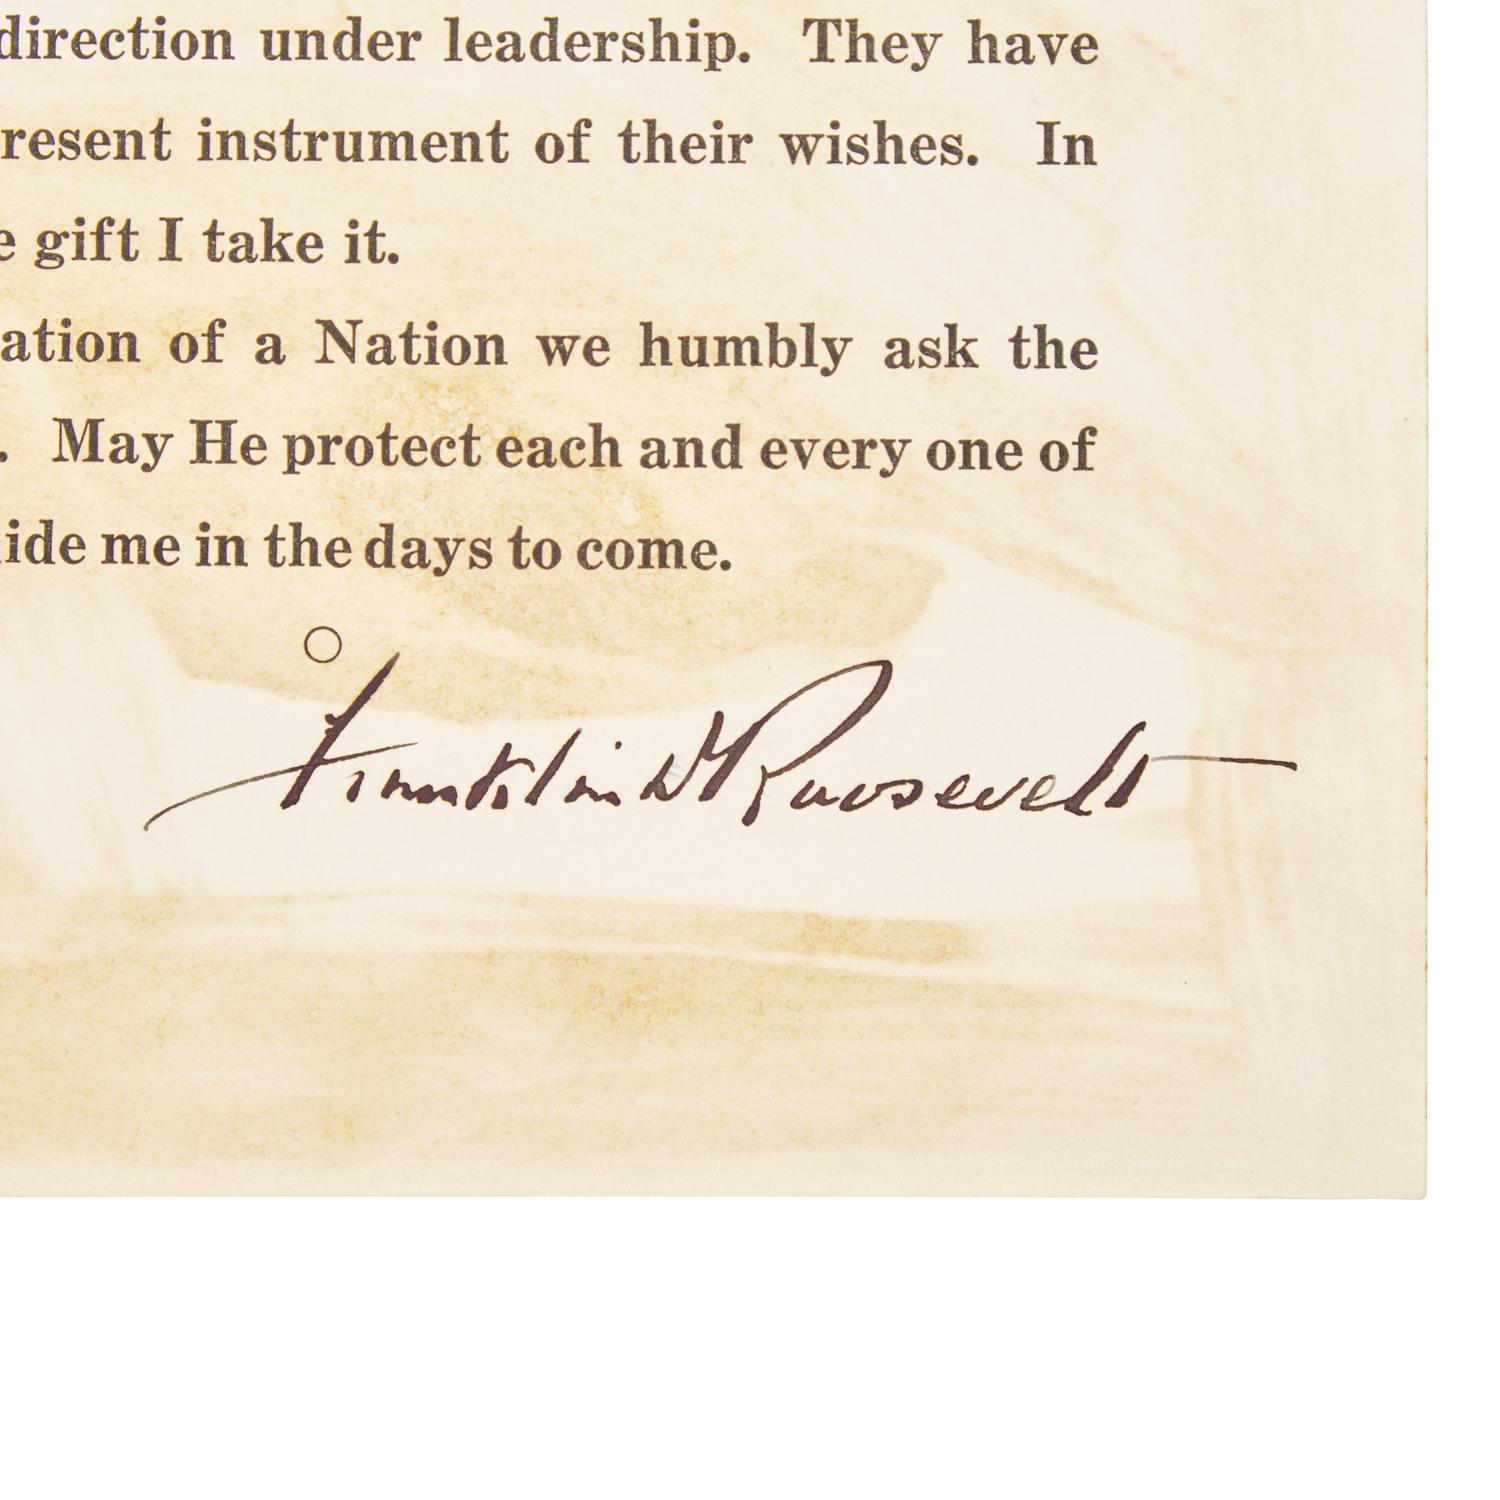 direction under leadership. They have
resent instrument of their wishes. In
e gift I take it.
ation of a Nation we humbly ask the
. May He protect each and every one of
ide me in the days to come.
Franklin D Roosevelt